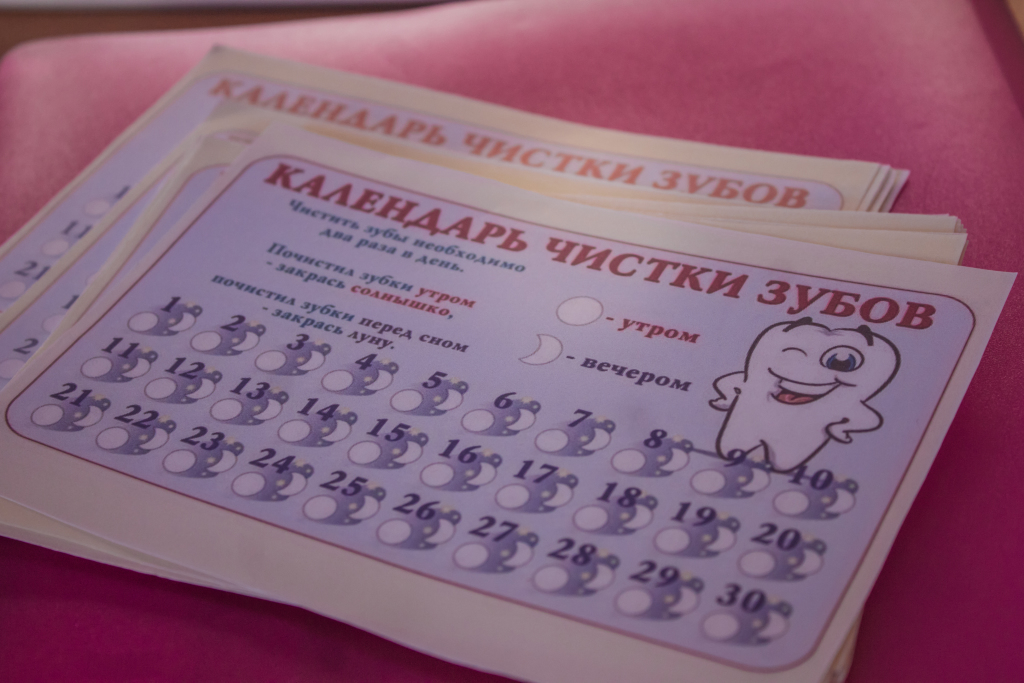 КАЛЕНДАРЬ ЧИСТКИ ЗУБОВ
КАЛЕНДАРЬ ЧИСТКИ ЗУБОВ
Чистить зубы необходимо
два раза в день.
Почистил зубки утром
- закрась солнышко,
почистил зубки перед сном
- закрась луну.
- утром
- вечером
1 2 3 4 5 6 7 8 9 10
11 12 13 14 15 16 17 18 19 20
21 22 23 24 25 26 27 28 29 30